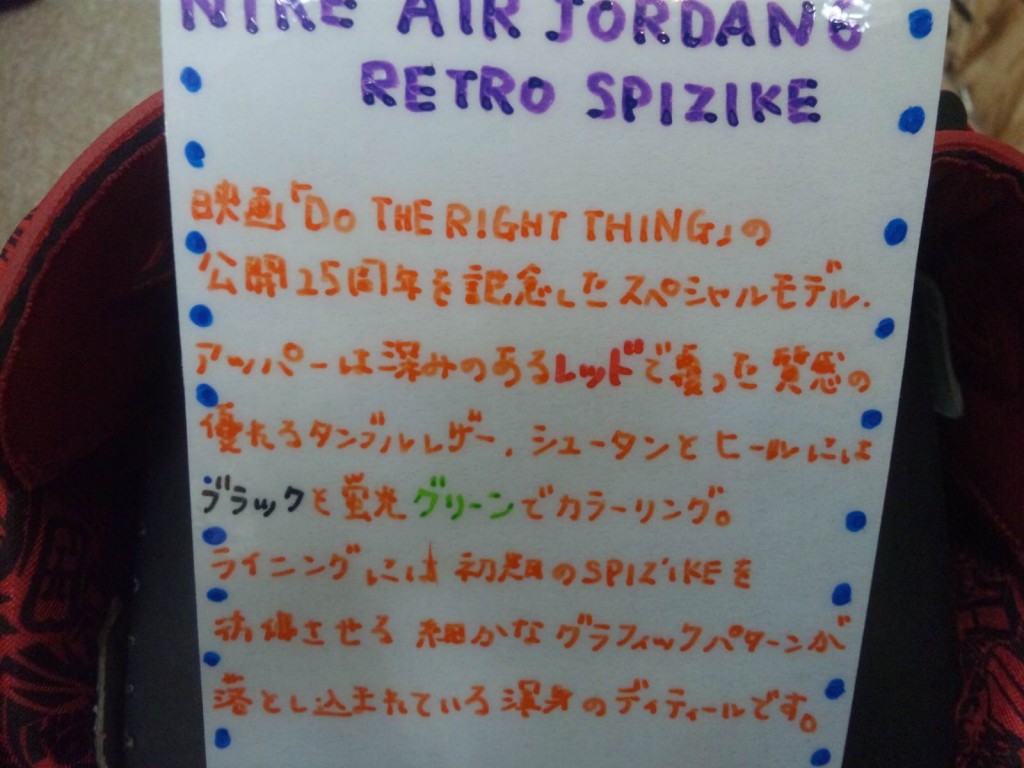 NIKE AIR JORDAN 6
RETRO SPIZIKE
映画「DO THE RIGHT THING」の
公開25周年を記念したスペシャルモデル.
アッパーは深みのあるレッドで覆った質感の
優れるタンブルレザー,シュータンとヒールには
ブラックと蛍光グリーンでカラーリング。
ライニングには初期のSPIZ'IKEを
彷彿させる細かなグラフィックパターンが
落とし込まれている渾身のディティールです。